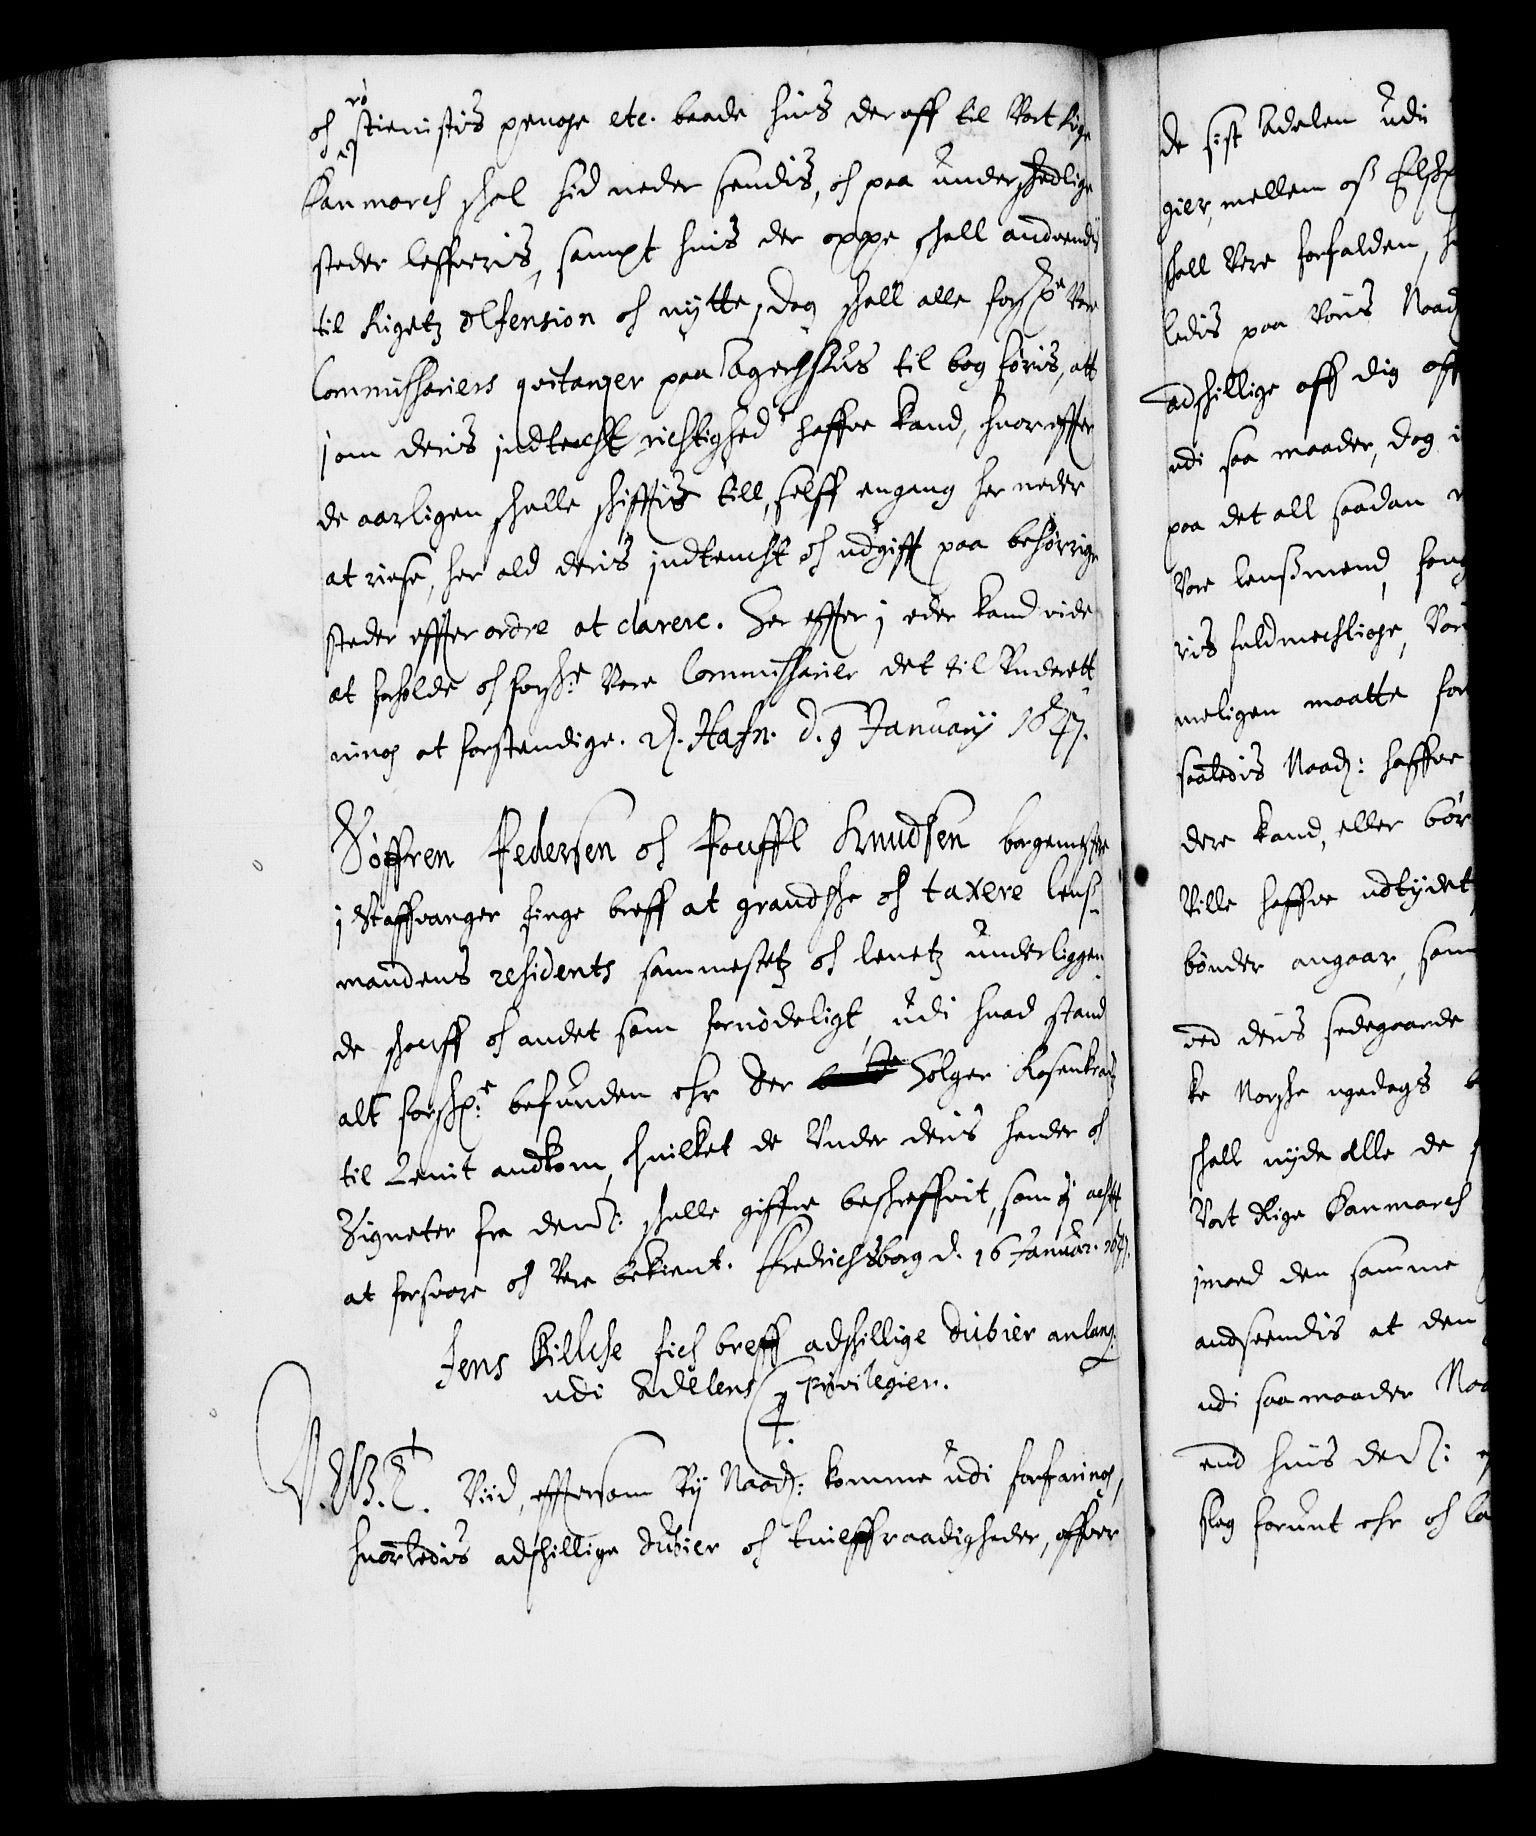 och rostienistis penge etc. baade huis der aff til Vort Rige
Danmarch skal hid neder sendis, och paa underskedlige
steder lefferis, sampt huis der oppe skall anvendis
til Rigetz defension och nytte, dog skall alle forskrne Vore
Commissariers qvitanzer paa Agershuus til bog føris, att
j om deris indtecht richtighed haffve kand, huor effter
de aarligen skulle skiftis till, selff engang her neder
at riese, her ald deris indtecht och udgifft paa behørrige
steder effter ordre at clarere. Her effter j eder kand vide
at forholde och forskrne Vore Commissarier det til Underrett
ning at forstendige. Hafn. d. 9 Januarij 1647.
Søffren Pedersen och Pouffl Knudsen borgemestre
j Staffvanger finge breff at grandske och taxere lens-
mandens residents sammestetz och lenetz underliggen-
de skouff och andet som fornødeligt, udi huad stand
alt forskrne befunden ehr der Holger Rosenkrantz
til Lenit andkom, huilket de Under deris hender och
Signeter fra dennem skulle giffve beskreffvit, som j acht
at forsvare och Vere bekient. Fredrichsborg d. 16 Januar. 1647.
Jens Bilche fich breff adskillige dubier anlang.
udi Adelens privilegier.
C. 4. G. T. Viid, effter som Vy Naad: komme udi forfaring,
huorledis adskillige dubier och tuilffraadigheder, offver
de sist Adelen udi
gier, mellem oss Elsk
skall Vere forfalden,
ledis paa Voris Naad
adskillige aff dig
udi saa maader, dog
paa det all saadan
Vore lensmend, fong
ris fuldmechtige,
meligen maatte for
saaledis Naad: haffve
dere kand, eller bør
Ville haffve udtydet
bønder angaar, som
ved deris sedegaarde
ke Norske
skall nyde alle de
Vort Rige Danmarch
imod den samme
andseendis at den
udi saa maader
end huis der
slag forunt ehr och